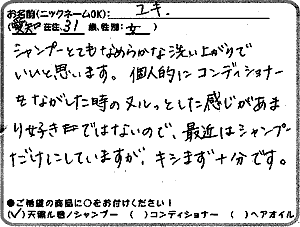 お名前(ニックネームOK): ユキ
(愛知)在住、31 歳、性別: 女 )
シャンプーとてもなめらかな洗い上がりで
いいと思います。個人的にコンディショナー
をながした時のヌルっとした感じがあま
り好きではないので、最近はシャンプー
だけにしていますが、キシまず十分です。
●ご希望の商品に○をお付けください!
(✓)天織ル恵ノシャンプー ( )コンディショナー ( )ヘアオイル